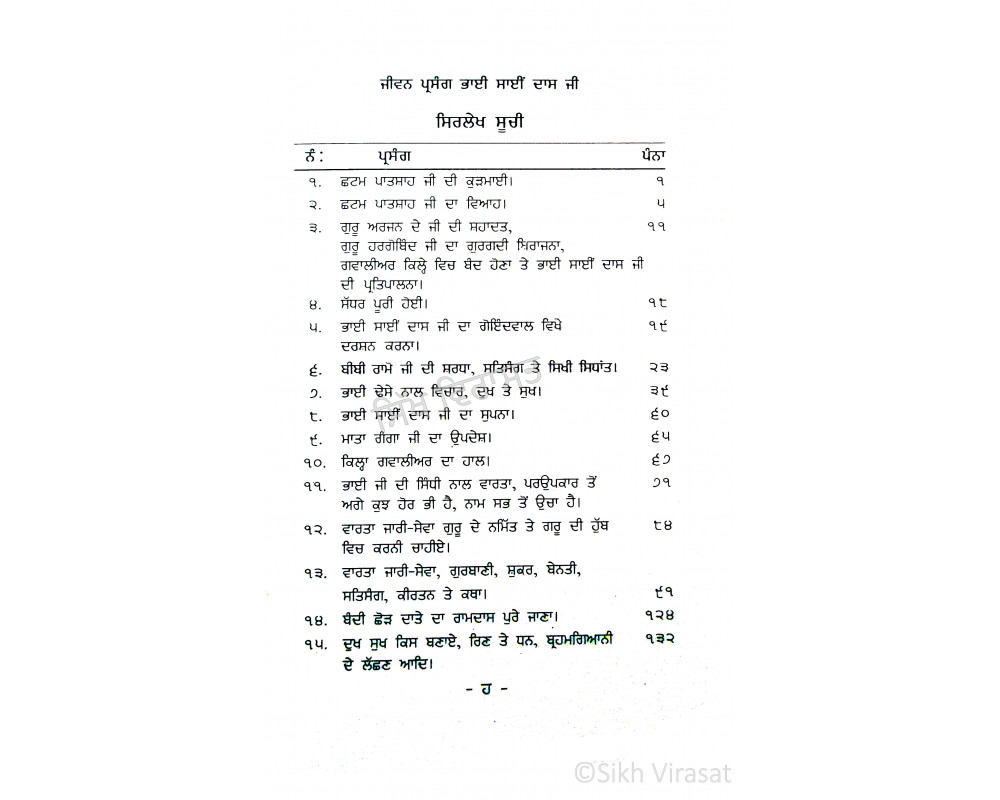 ਜੀਵਨ ਪ੍ਰਸੰਗ ਭਾਈ ਸਾਈਂ ਦਾਸ ਜੀ
ਸਿਰਲੇਖ ਸੂਚੀ
ਨੰ: ਪ੍ਰਸੰਗ ਪੰਨਾ
੧. ਛਟਮ ਪਾਤਸਾਹ ਜੀ ਦੀ ਕੁੜਮਾਈ। ੧
੨. ਛਟਮ ਪਾਤਸਾਹ ਜੀ ਦਾ ਵਿਆਹ। ੫
੩. ਗੁਰੂ ਅਰਜਨ ਦੇ ਜੀ ਦੀ ਸ਼ਹਾਦਤ, ੧੧
ਗੁਰੂ ਹਰਗੋਬਿੰਦ ਜੀ ਦਾ ਗੁਰਗਦੀ ਬਿਰਾਜਨਾ,
ਗਵਾਲੀਅਰ ਕਿਲ੍ਹੇ ਵਿਚ ਬੰਦ ਹੋਣਾ ਤੇ ਭਾਈ ਸਾਈਂ ਦਾਸ ਜੀ
ਦੀ ਪ੍ਰਤਿਪਾਲਨਾ।
੪. ਸੱਧਰ ਪੂਰੀ ਹੋਈ। ੧੮
੫. ਭਾਈ ਸਾਈਂ ਦਾਸ ਜੀ ਦਾ ਗੋਇੰਦਵਾਲ ਵਿਖੇ ੧੯
ਦਰਸ਼ਨ ਕਰਨਾ।
੬. ਬੀਬੀ ਰਾਮੋ ਜੀ ਦੀ ਸ਼ਰਧਾ, ਸਤਿਸੰਗ ਤੇ ਸਿਖੀ ਸਿਧਾਂਤ। ੨੩
੭. ਭਾਈ ਢੇਸੇ ਨਾਲ ਵਿਚਾਰ, ਦੁਖ ਤੇ ਸੁਖ। ੩੯
੮. ਭਾਈ ਸਾਈਂ ਦਾਸ ਜੀ ਦਾ ਸੁਪਨਾ। ੬੦
੯. ਮਾਤਾ ਗੰਗਾ ਜੀ ਦਾ ਉਪਦੇਸ਼। ੬੫
੧੦. ਕਿਲ੍ਹਾ ਗਵਾਲੀਅਰ ਦਾ ਹਾਲ। ੬੭
੧੧. ਭਾਈ ਜੀ ਦੀ ਸਿੰਧੀ ਨਾਲ ਵਾਰਤਾ, ਪਰਉਪਕਾਰ ਤੋਂ ੭੧
ਅਗੇ ਕੁਝ ਹੋਰ ਭੀ ਹੈ, ਨਾਮ ਸਭ ਤੋਂ ਉਚਾ ਹੈ।
੧੨. ਵਾਰਤਾ ਜਾਰੀ-ਸੇਵਾ ਗੁਰੂ ਦੇ ਨਮਿੱਤ ਤੇ ਗਰੂ ਦੀ ਹੁੱਬ ੮੪
ਵਿਚ ਕਰਨੀ ਚਾਹੀਏ।
੧੩. ਵਾਰਤਾ ਜਾਰੀ-ਸੇਵਾ, ਗੁਰਬਾਣੀ, ਸ਼ੁਕਰ, ਬੇਨਤੀ,
ਸਤਿਸੰਗ, ਕੀਰਤਨ ਤੇ ਕਥਾ। ੯੧
੧੪. ਬੰਦੀ ਛੋੜ ਦਾਤੇ ਦਾ ਰਾਮਦਾਸ ਪੁਰੇ ਜਾਣਾ। ੧੨੪
੧੫. ਦੁਖ ਸੁਖ ਕਿਸ ਬਣਾਏ, ਰਿਣ ਤੇ ਧਨ, ਬ੍ਰਹਮਗਿਆਨੀ ੧੩੨
ਦੇ ਲੱਛਣ ਆਦਿ।
- ਹ -
ਸਿੱਖ ਵਿਰਾਸਤ
©Sikh Virasat